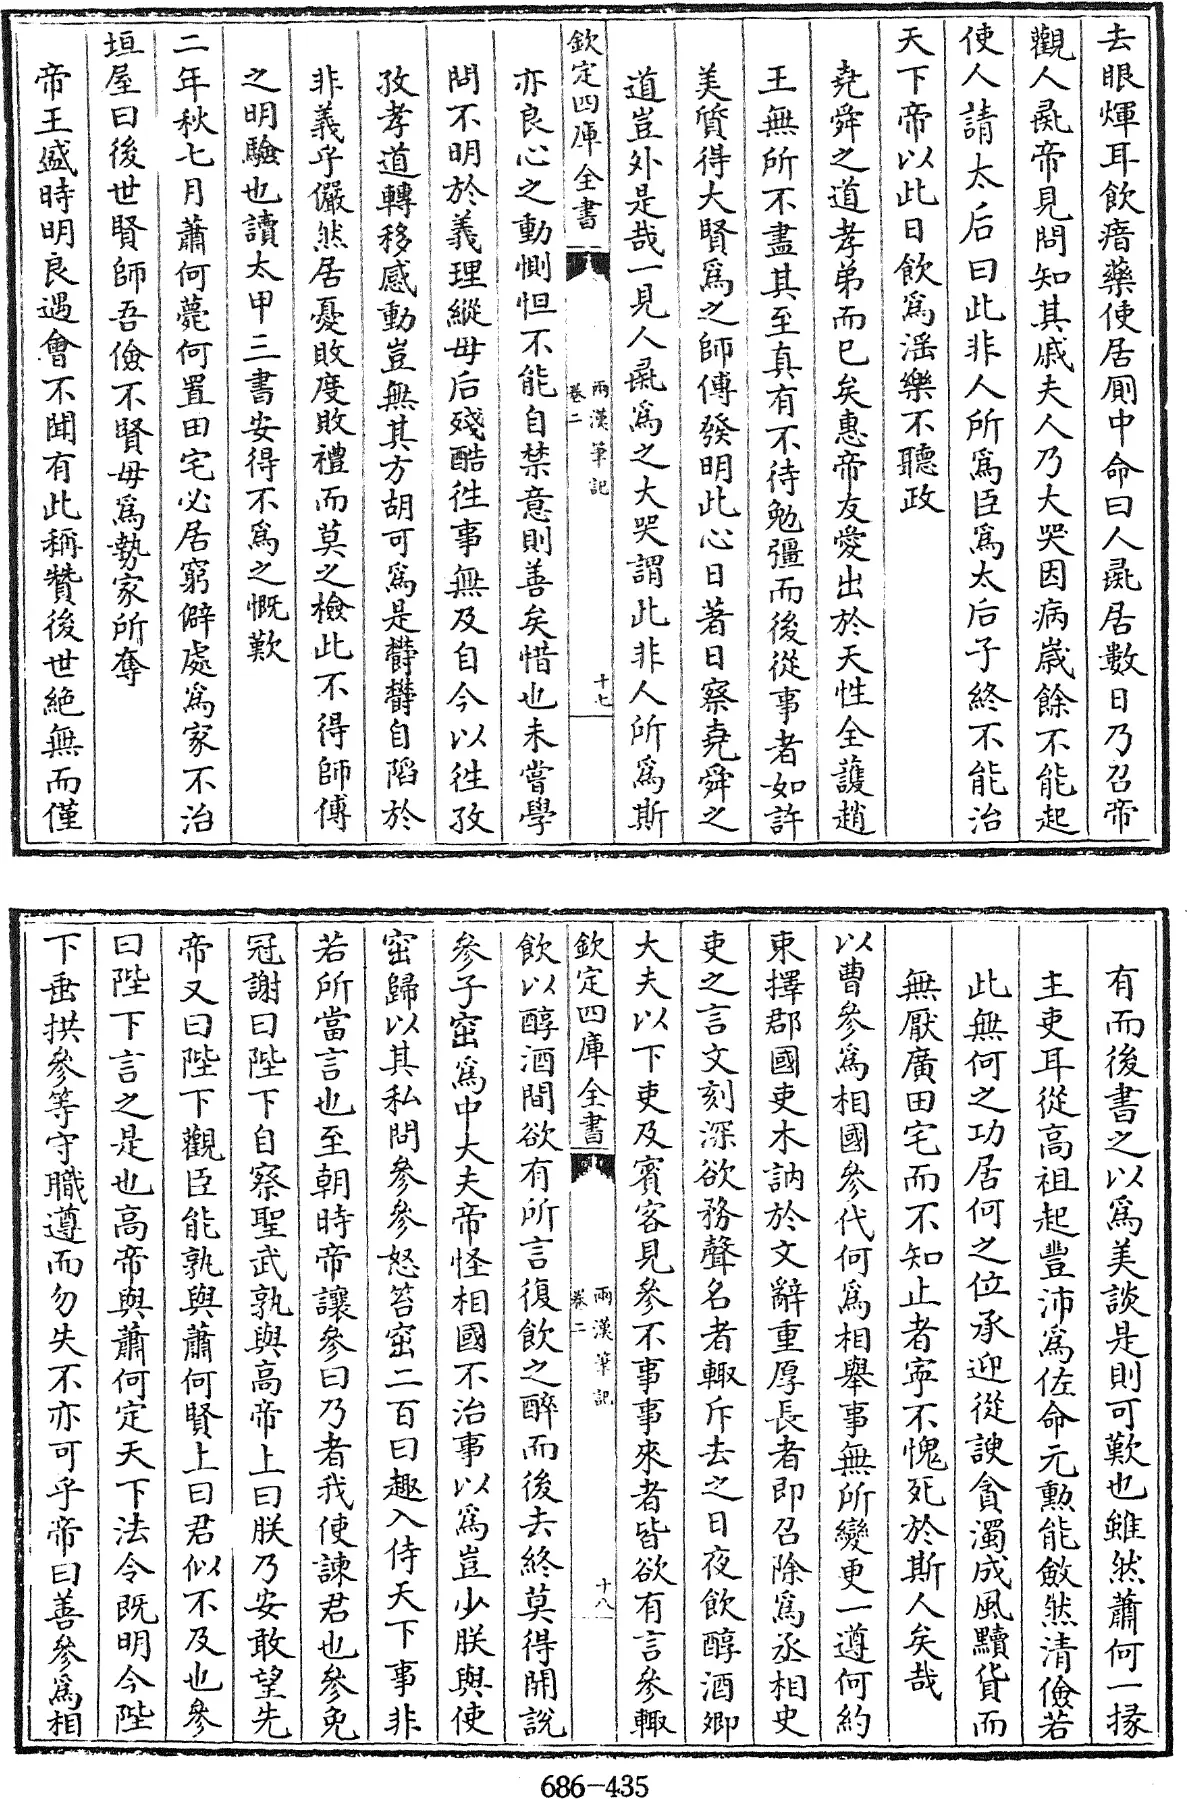 去眼煇耳飲瘖藥使居厠中命曰人彘居數日乃召帝
觀人彘帝見問知其戚夫人乃大哭因病嵗餘不能起
使人請太后曰此非人所為臣為太后子終不能治
天下帝以此日飲為滛樂不聽政
堯舜之道孝弟而已矣惠帝友愛出於天性全護趙
王無所不盡其至真有不待勉彊而後從事者如許
美質得大賢為之師傅發明此心日著日察堯舜之
道豈外是哉一見人彘為之大哭謂此非人所為斯
欽定四庫全書
兩漢筆記
卷二
十七
亦良心之動惻怛不能自禁意則善矣惜也未嘗學
問不明於義理縱母后殘酷徃事無及自今以徃孜
孜孝道轉移感動豈無其方胡可為是欝欝自陷於
非義乎儼然居憂敗度敗禮而莫之檢此不得師傅
之明驗也讀太甲三書安得不為之慨歎
二年秋七月蕭何薨何置田宅必居窮僻處為家不治
垣屋曰後世賢師吾儉不賢毋為勢家所奪
帝王盛時明良遇會不聞有此稱贊後世絶無而僅
有而後書之以為美談是則可歎也雖然蕭何一掾
主吏耳從高祖起豐沛為佐命元勲能斂然清儉若
此無何之功居何之位承迎從諛貪濁成風黷貨而
無厭廣田宅而不知止者寧不愧死於斯人矣哉
以曹參為相國參代何為相舉事無所變更一遵何約
束擇郡國吏木訥於文辭重厚長者即召除為丞相史
吏之言文刻深欲務聲名者輙斥去之日夜飲醇酒卿
大夫以下吏及賓客見參不事事來者皆欲有言參輙
欽定四庫全書
兩漢筆記
卷二
十八
飲以醇酒間欲有所言復飲之醉而後去終莫得開說
參子窋為中大夫帝怪相國不治事以為豈少朕與使
窋歸以其私問參參怒笞窋二百曰趣入侍天下事非
若所當言也至朝時帝讓參曰乃者我使諫君也參免
冠謝曰陛下自察聖武孰與高帝上曰朕乃安敢望先
帝又曰陛下觀臣能孰與蕭何賢上曰君似不及也參
曰陛下言之是也高帝與蕭何定天下法令既明今陛
下垂拱參等守職遵而勿失不亦可乎帝曰善參為相
686-435